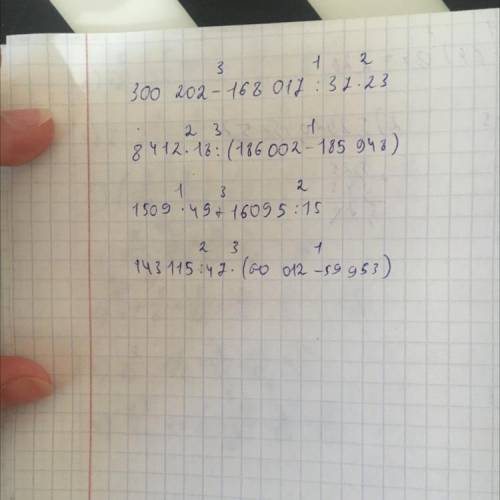 3 1 2
300 202 - 168 017 : 37 · 23
2 3 1
8 412 · 18 : (186 002 - 185 948)
1 3 2
1509 · 49 + 16095 : 15
2 3 1
143 115 : 47 · (60 012 - 59 953)